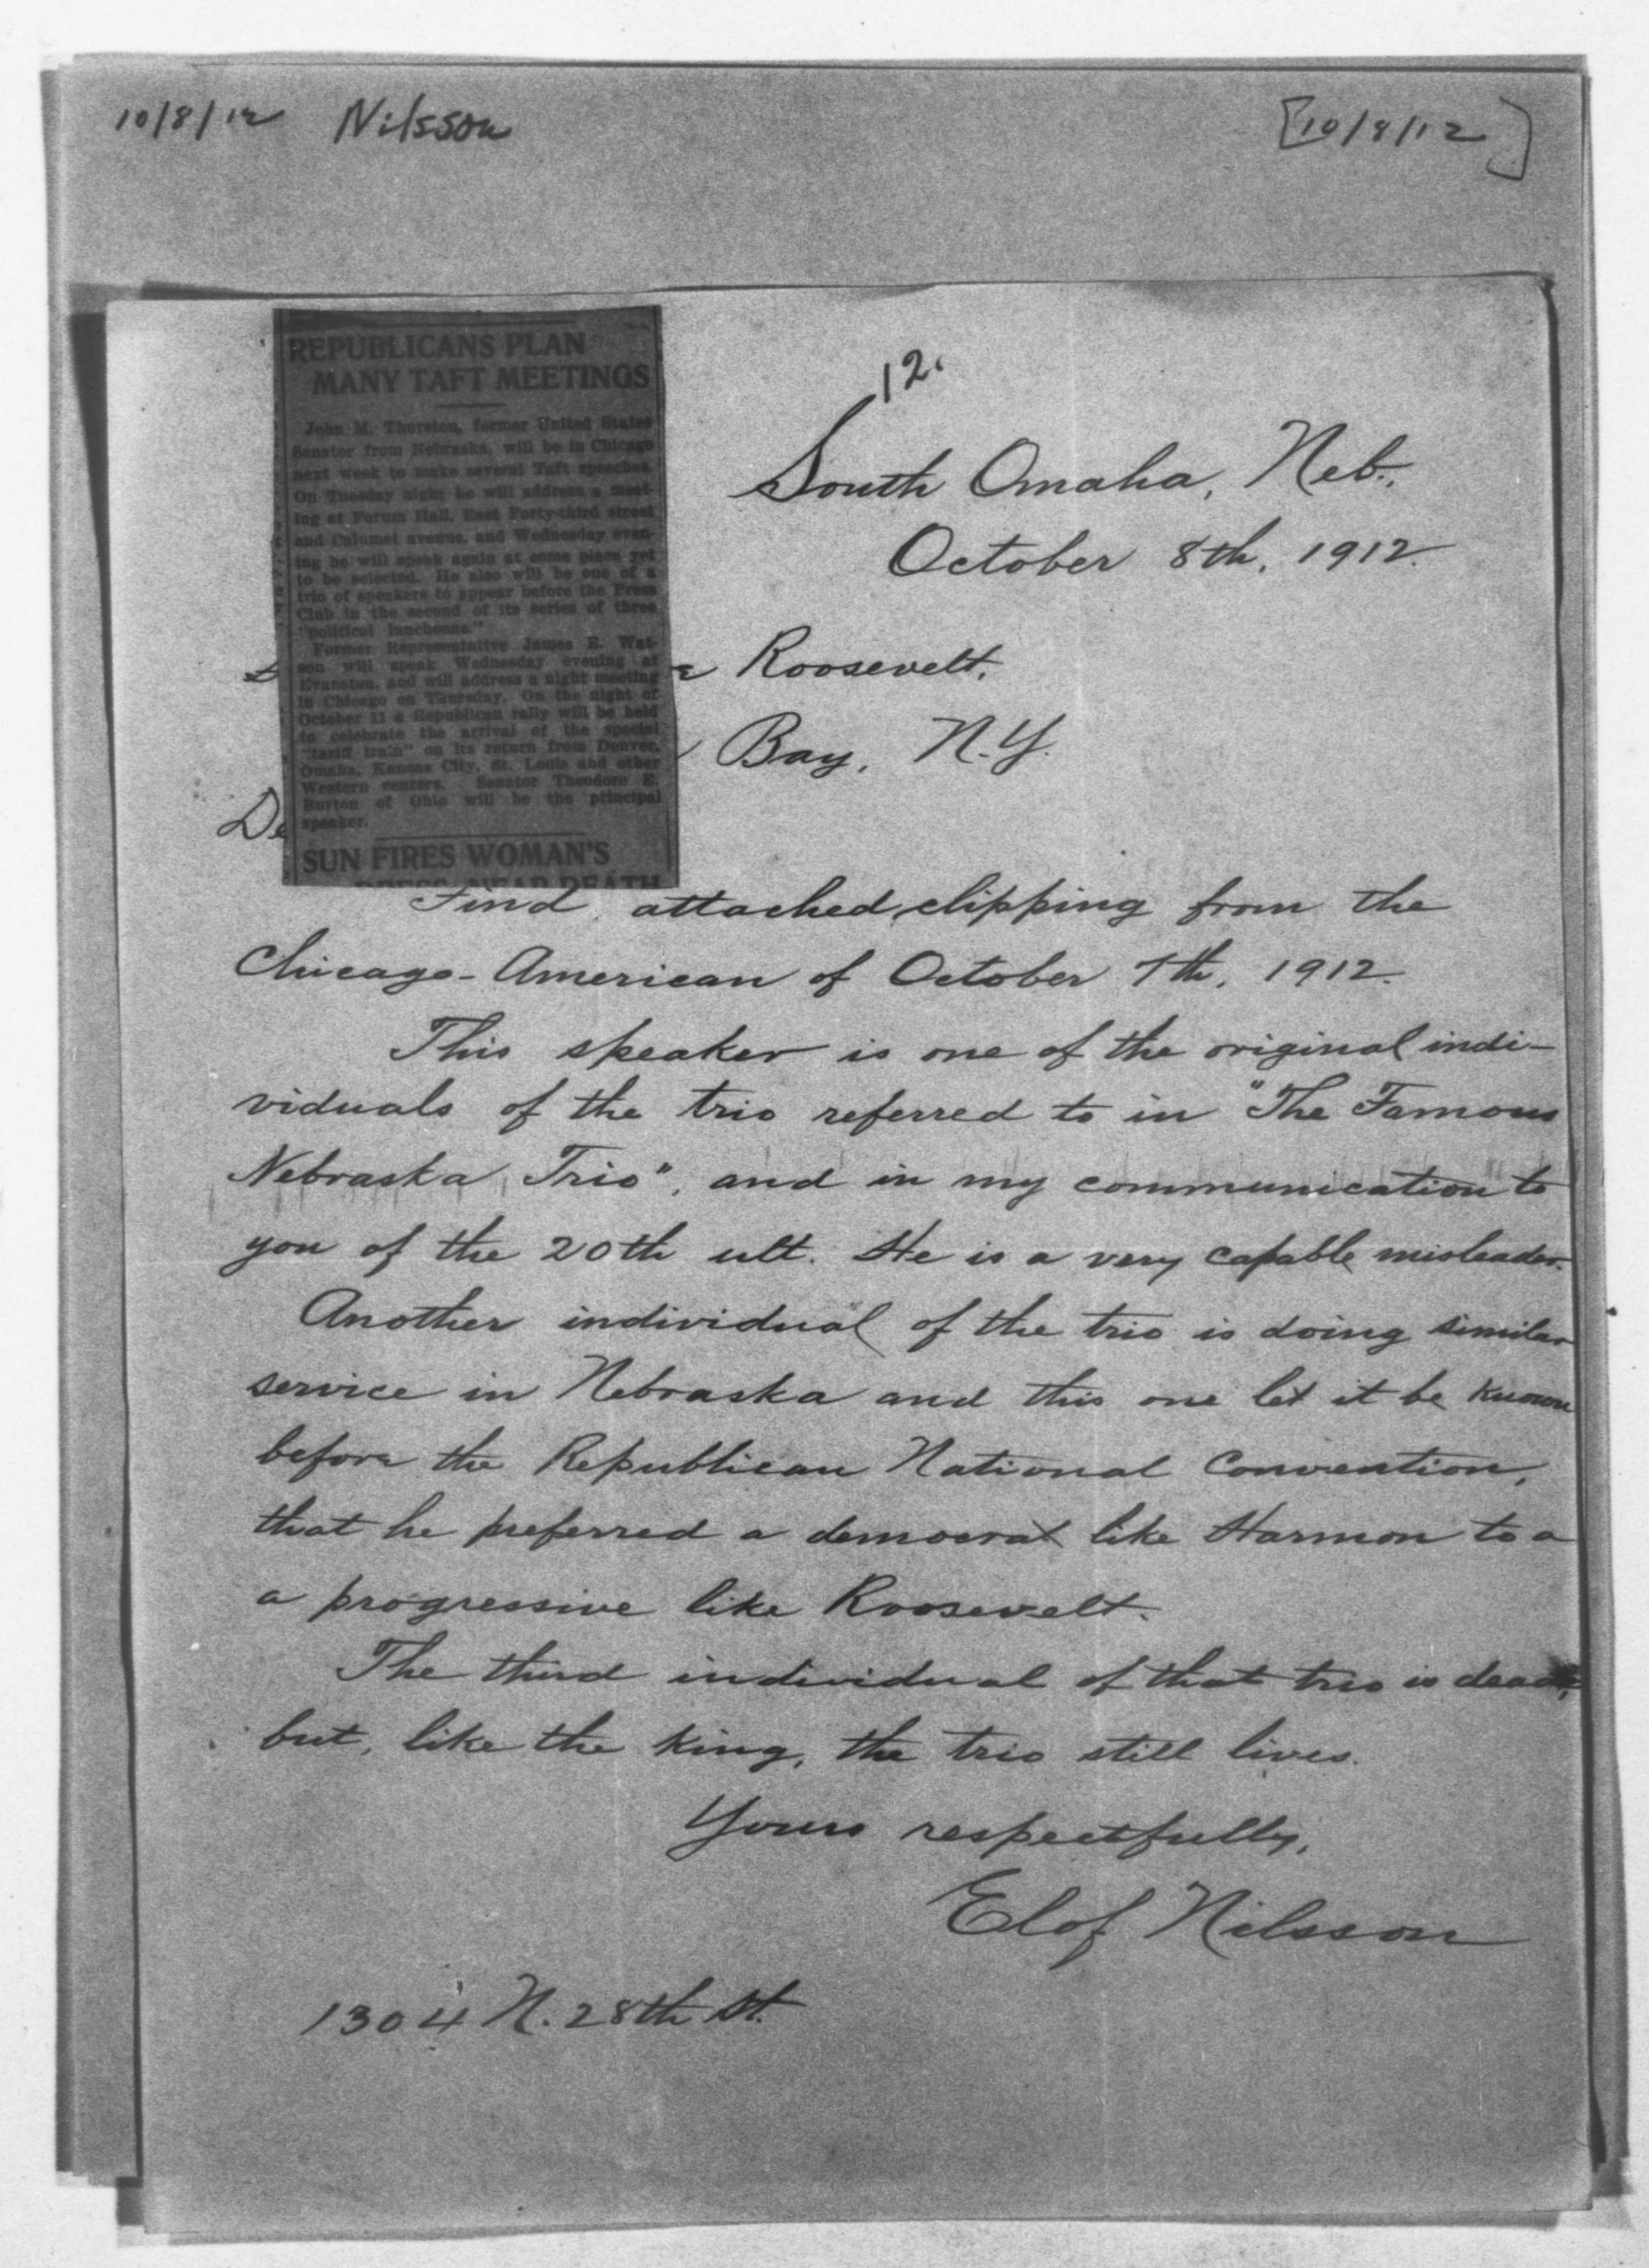 10/8/12 Nilsson [10/8/12]
REPUBLICANS PLAN
MANY TAFT MEETINGS
John M. Thurston, former United States
Senator from Nebraska, will be in Chicago
next week to make several Taft speeches.
On Tuesday night he will address a meet-
ing at Forum Hall, East Forty-third street
and Calumet avenue, and Wednesday even-
ing he will speak again at some place yet
to be selected. He also will be one of a
trio of speakers to appear before the Press
Club in the second of its series of three
"political luncheons."
Former Representative James E. Wat-
son will speak Wednesday evening at
Evanston, and will address a night meeting
in Chicago on Thursday. On the night of
October 11 a Republican rally will be held
to celebrate the arrival of the special
"tariff train" on its return from Denver,
Omaha, Kansas City, St. Louis and other
Western centers. Senator Theodore E.
Burton of Ohio will be the principal
speaker.
SUN FIRES WOMAN'S
DRESS, NEAR DEATH
12.
South Omaha, Neb.,
October 8th, 1912.
Roosevelt,
Bay, N.Y.
De
Find attached, clipping from the
Chicago-American of October 7th, 1912.
This speaker is one of the original indi-
viduals of the trio referred to in "The Famous
Nebraska Trio", and in my communication to
you of the 20th ult. He is a very capable misleader.
Another individual of the trio is doing similar
service in Nebraska and this one let it be known
before the Republican National Convention,
that he preferred a democrat like Harmon to a
a progressive like Roosevelt.
The third individual of that trio is dead,
but, like the king, the trio still lives.
Yours respectfully,
Elof Nilsson
1304 N. 28th St.